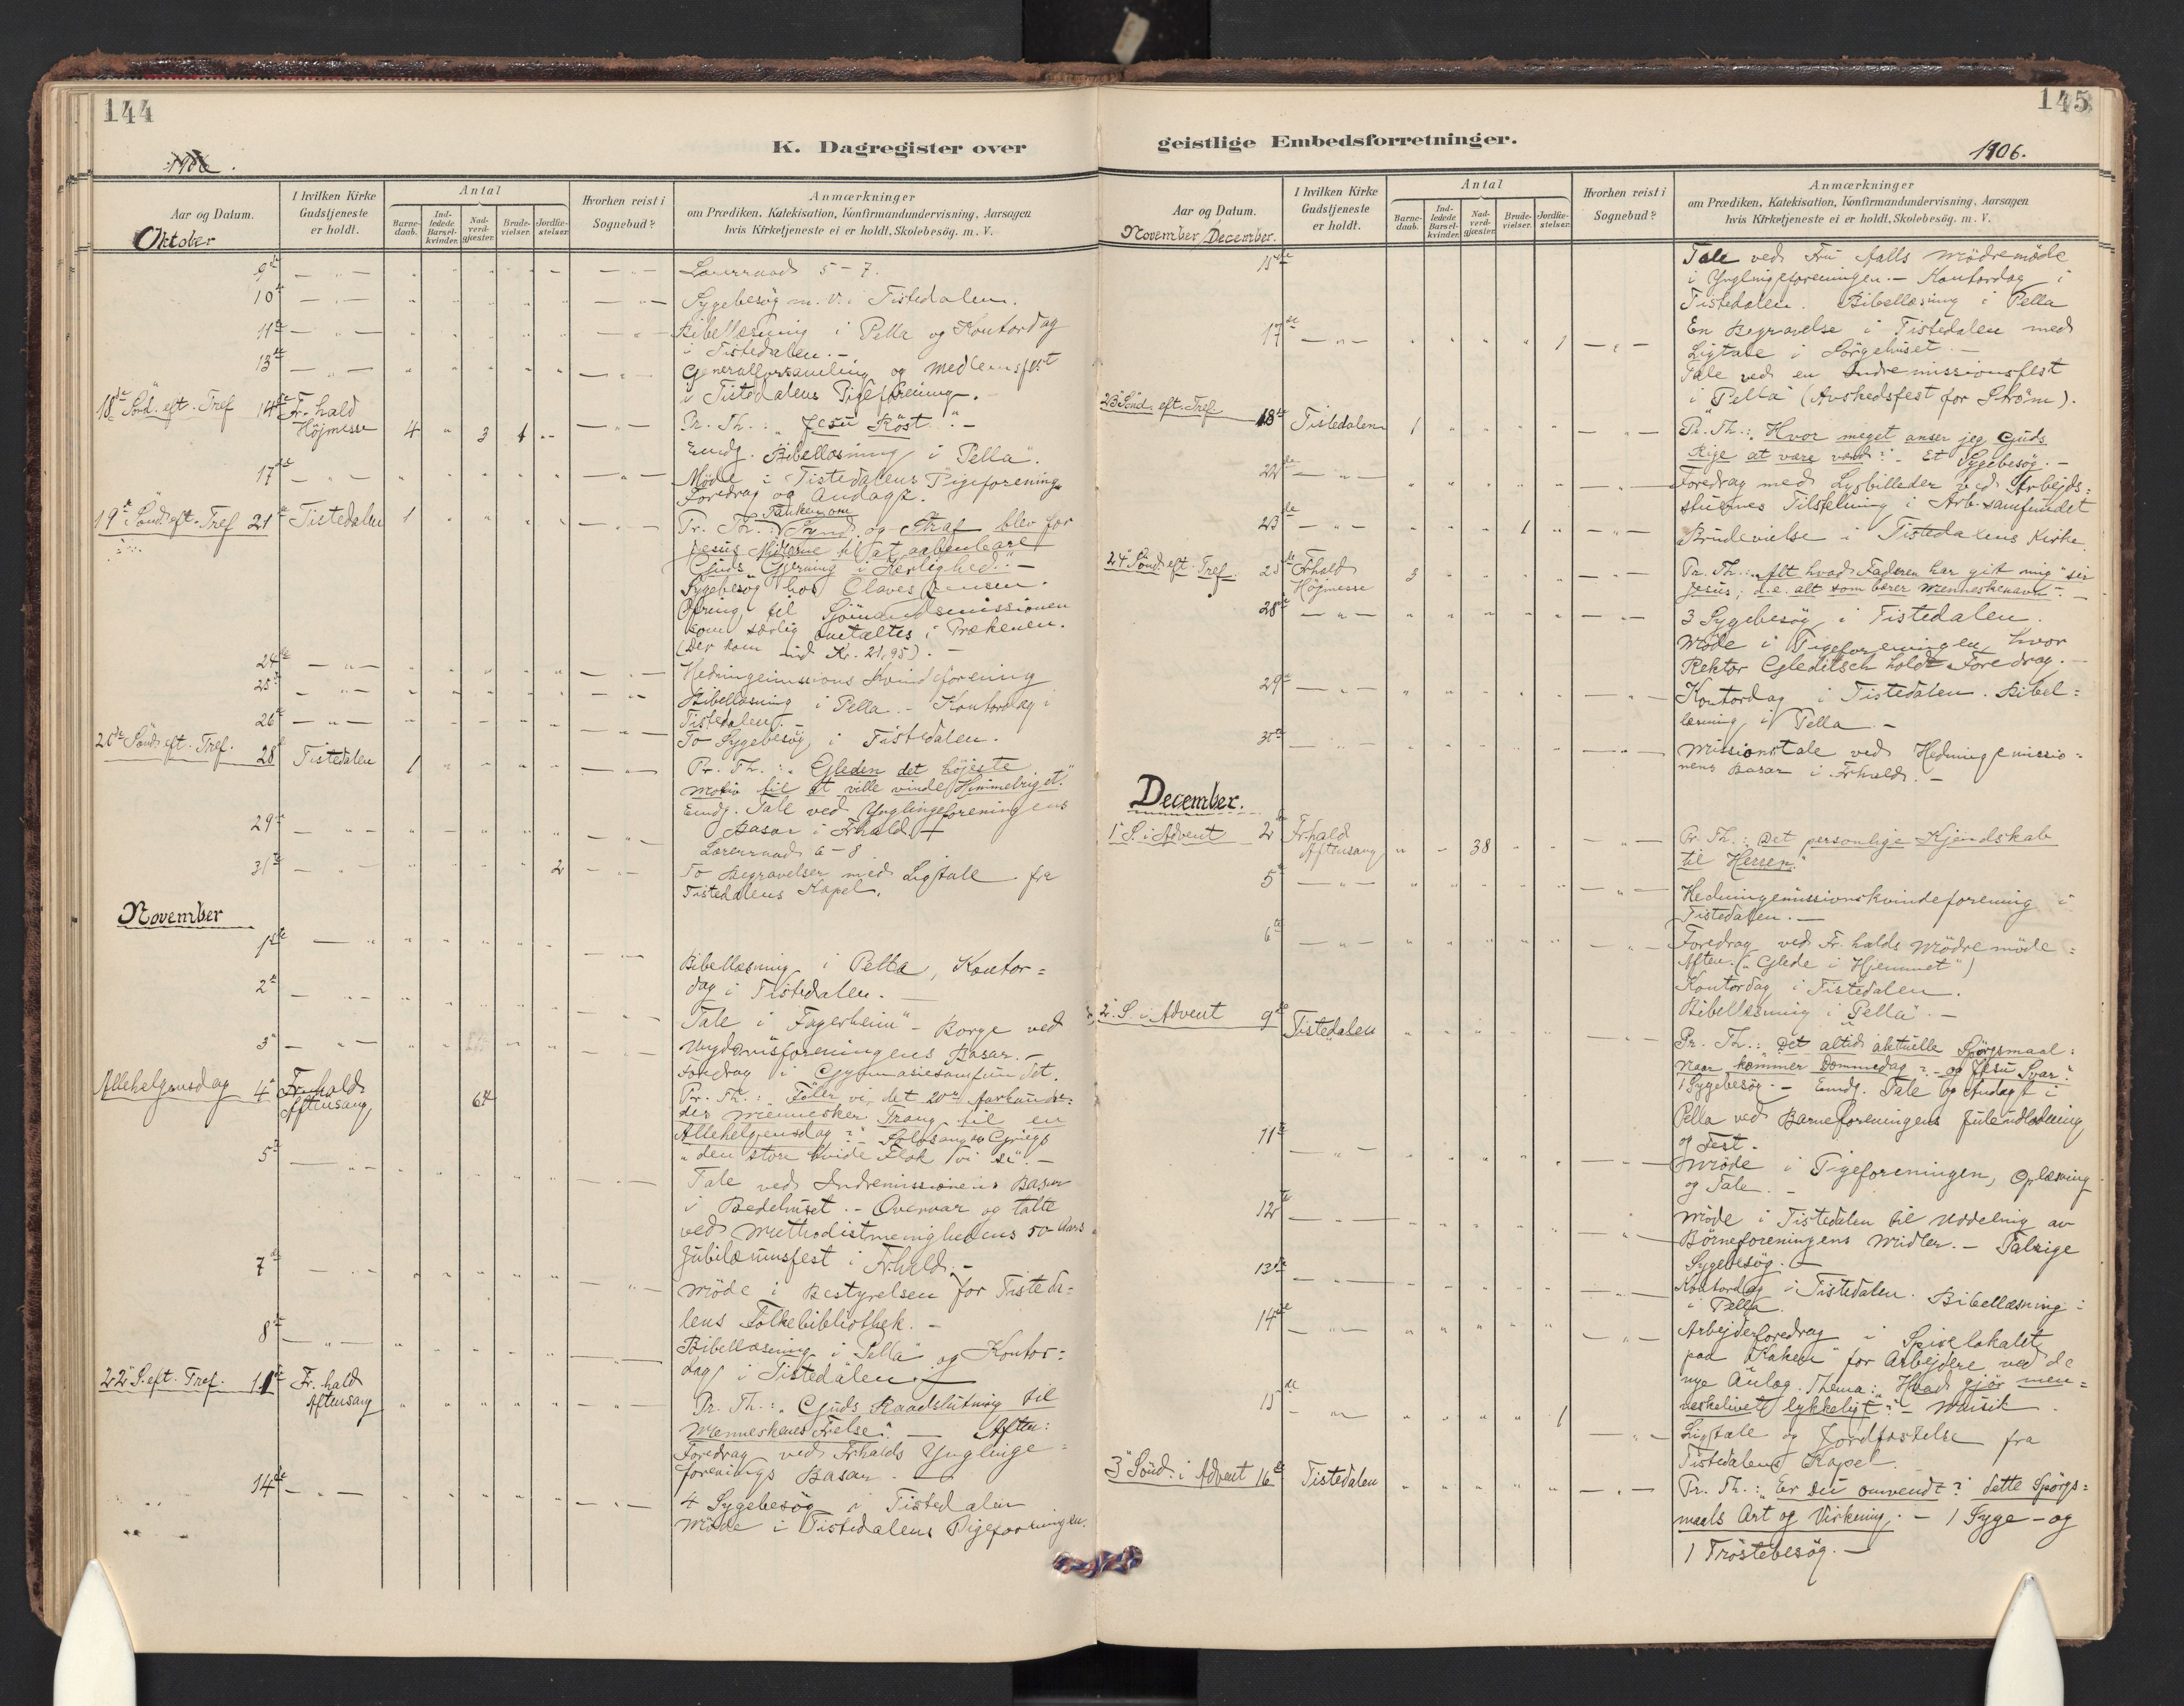 144
K. Dagregister over
1906.
Aar og Datum.
I hvilken Kirke Gudstjeneste er holdt.
Antal
Barne-daab.
Ind-ledede Barsel-kvinder.
Nad-verd-gjæster.
Brude-vielser.
Jordfæ-stelser.
Hvorhen reist i Sognebud?
Anmærkninger
om Prædiken, Katekisation, Konfirmandundervisning, Aarsagen
hvis Kirketjeneste ei er holdt, Skolebesög. m. V.
Oktober
9de Lærerraad 5-7.
10de Sygebesög m. V. i Tistedalen.
11te Bibellæsning i Pella og Kontordag
i Tistedalen. -
13de Generalforsamling og Medlemsfest
i Tistedalens Pigeforening. -
18de Sönd. eft. Tref 14de Fr. hald Höjmesse 4 " 3 1 Pr. Th.: "Jesu Röst". -
Eundg. Bibellæsning i "Pella".
17de Möde i Tistedalens Pigeforening
Foredrag og Andagt.
19de Sönd. eft. Tref 21de Tistedalen 1 Pr. Th.: Tanken om Synd og Straf blev for
Jesus Midlerne til at aabenbare
Guds Gjerning i Kærlighed". -
Sygebesög hos Olaves Jensen.
Ofring til Sjömandsmissionen
som særlig omtaltes i Prækenen.
(Der kom ind Kr. 21,95). -
24de Hedningemissions Kvindeforening
25de Bibellæsning i Pella. - Kontordag i
Tistedalen. -
26de To Sygebesög i Tistedalen.
20de Sönd. eft. Tref. 28de Tistedalen 1 Pr. Th.: "Glæden det höjeste
Motiv til at ville vinde Himmelriget."
Eundg. Tale ved Ynglingeforeningens
Basar i Frhald.
29de Lærerraad 6-8
31te 2 To Begravelser med Ligtale fra
Tistedalens Kapel.
November
1ste Bibellæsning i Pella, Kontor=
dag i Tistedalen. -
2de Tale i "Fagerheim" - Borge ved
Ungdomsforeningens Basar. -
3de Foredrag i Gymnasiesamfundet.
Allehelgensdag 4de Fr. hald Aftensang 64 Pr. Th.: "Föler vi, det 20de Aarhundre=
des Mennesker Trang til en
Allehelgensdag?" - Solosang av Griegs
"den store hvide Flok vi se". -
5te Tale ved Indremissionens Basar
i Bedehuset. - Overvar og talte
ved Methodistmenighedens 50 Aars
Jubilæumsfest i Frhald. -
7de Möde i Bestyrelsen for Tisteda=
lens Folkebibliothek. -
8de Bibellæsning i "Pella" og Kontor=
dag i Tistedalen. -
22de S. eft. Tref. 11te Fr. hald Aftensang Pr. Th.: "Guds Raadslutning til
Menneskenes Frelse". - Aften:
Foredrag ved Frhalds Ynglinge=
forenings Basar. -
14de 4 Sygebesög i Tistedalen
Möde i Tistedalens Pigeforeningen.
145
geistlige Embedsforretninger.
1906.
Aar og Datum.
I hvilken Kirke Gudstjeneste er holdt.
Antal
Barne-daab.
Ind-ledede Barsel-kvinder.
Nad-verd-gjæster.
Brude-vielser.
Jordfæ-stelser.
Hvorhen reist i Sognebud?
Anmærkninger
om Prædiken, Katekisation, Konfirmandundervisning, Aarsagen
hvis Kirketjeneste ei er holdt, Skolebesög. m. V.
November/December.
15de Tale ved Mödremöde
i Ynglingeforeningen. - Kontordag i
Tistedalen. Bibellæsning i Pella
17de 1 En Begravelse i Tistedalen med
Ligtale i Sörgehuset. -
Tale ved en Indremissionsfest
i "Pella" (Avskedsfest for Ström).
23de Sönd. eft. Tref. 18de Tistedalen 1 Pr. Th.: "Hvor meget anser jeg Guds
Rige at være værd?" - Et Sygebesög. -
22de Foredrag med Lysbilleder ved Arbejds=
stuernes Tilstelning i Arb. samfundet
23de 1 Brudevielse i Tistedalens Kirke
24de Sönd. eft. Tref. 25de Frhald Höjmesse 3 Pr. Th.: "Alt hvad Faderen har git mig" sir
Jesus; d. e. alt som bærer Menneskenavn". -
28de 3 Sygebesög i Tistedalen.
Möde i Pigeforeningen, hvor
Rektor Gleditsch holdt Foredrag. -
29de Kontordag i Tistedalen. Bibel=
læsning i Pella. -
30te Missionstale ved Hedningemissio=
nens Basar i Frhald. -
December.
1ste S. i Advent 2den Fr. hald Aftensang 38 Pr. Th.: "Det personlige Kjendskab
til Herren."
5te Hedningemissionskvindeforening i
Tistedalen. -
6te Foredrag ved Fr. halds Mödremöde=
Aften. ("Glede i Hjemmet")
Kontordag i Tistedalen.
Bibellæsning i "Pella". -
2den S. i Advent 9de Tistedalen Pr. Th.: "Det altid aktuelle Spörgsmaal:
Naar kommer Dommedag? - og Jesu Svar."
1 Sygebesög. - Eundg. Tale og Andagt i
Pella ved Barneforeningens Juleudlodning
og Fest. -
11te Möde i Pigeforeningen, Oplæsning
og Tale. -
12te Möde i Tistedalen til Uddeling av
Börneforeningens Midler. - Talrige
Sygebesög. -
13de Kontordag i Tistedalen. Bibellæsning i
i Pella.
14de Arbejderforedrag i Spiselokalet
paa for Arbejdere ved de
nye Anlæg. Thema: "Hvad gjör men=
neskelivet lykkeligt?" - Musik.
15de 1 Ligtale og Jordfæstelse fra
Tistedalens Kapel.
3de Sönd. i Advent 16de Tistedalen Pr. Th.: "Er Du omvendt? dette Spörgs=
maals Art og Virkning. - 1 Syge- og
1 Tröstebesög. -